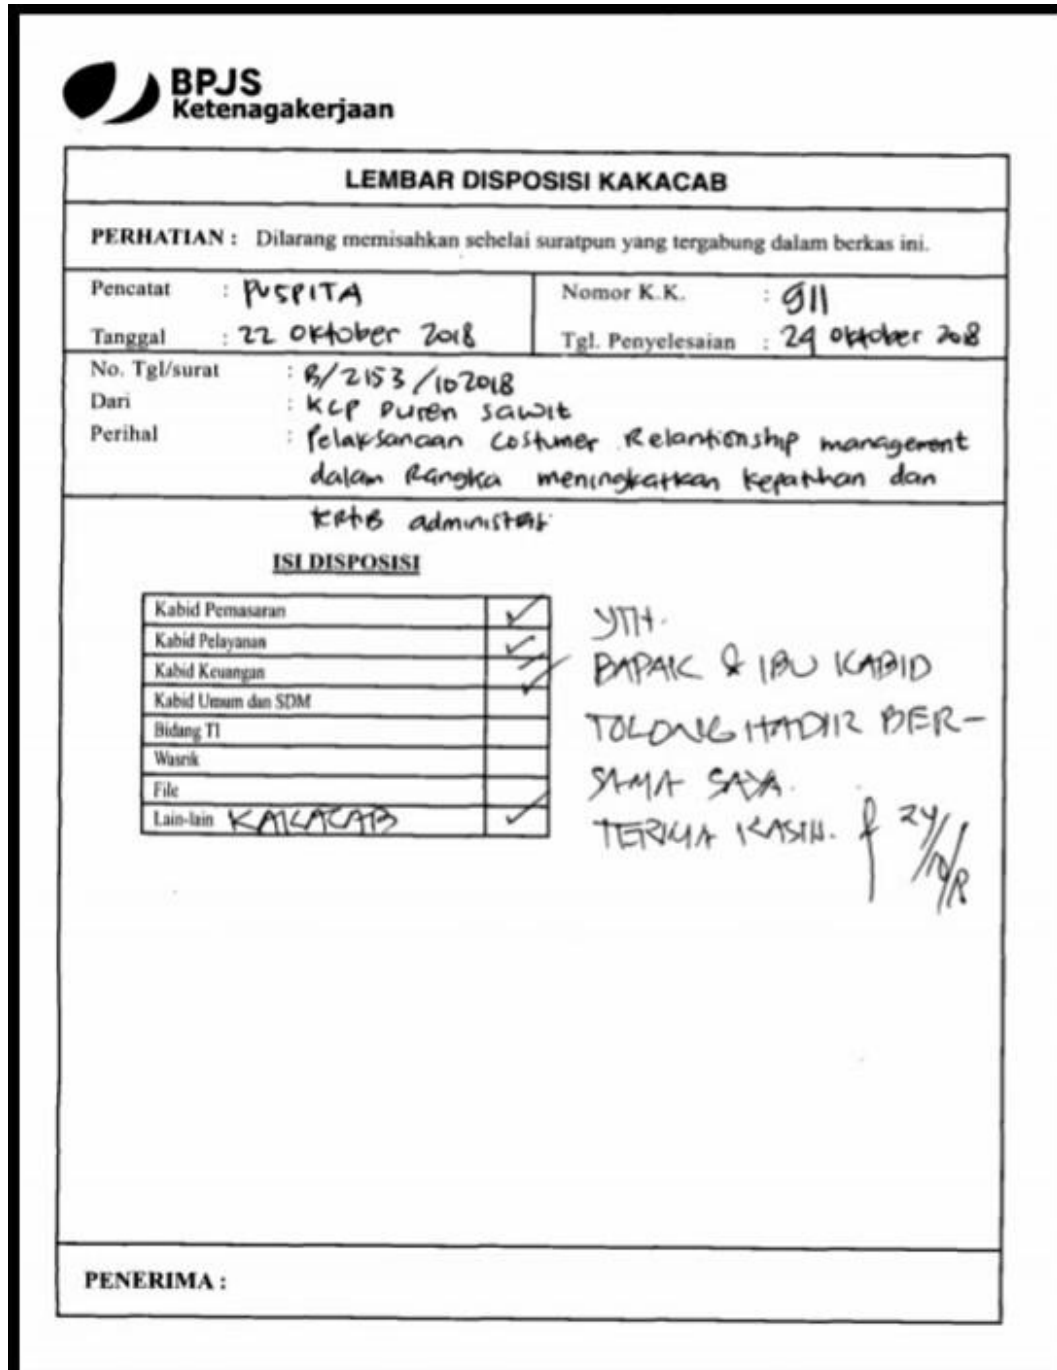 BPJS
Ketenagakerjaan
LEMBAR DISPOSISI KAKACAB
PERHATIAN : Dilarang memisahkan sehelai suratpun yang tergabung dalam berkas ini.
Pencatat : PUSPITA
Nomor K.K. : 911
Tanggal : 22 Oktober 2018
Tgl. Penyelesaian : 24 Oktober 2018
No. Tgl/surat : B/2153/102018
Dari : KCP Duren Sawit
Perihal : Pelaksanaan Costumer Relantionship management
dalam Rangka meningkatkan kepatuhan dan
tertib administrasi
ISI DISPOSISI
Kabid Pemasaran ✓
Kabid Pelayanan ✓
Kabid Keuangan ✓
Kabid Umum dan SDM ✓
Bidang TI
Wasrik
File
Lain-lain KAKACAB ✓
YTH.
BAPAK & IBU KABID
TOLONG HADIR BER-
SAMA SAYA.
TERIMA KASIH.
PENERIMA :